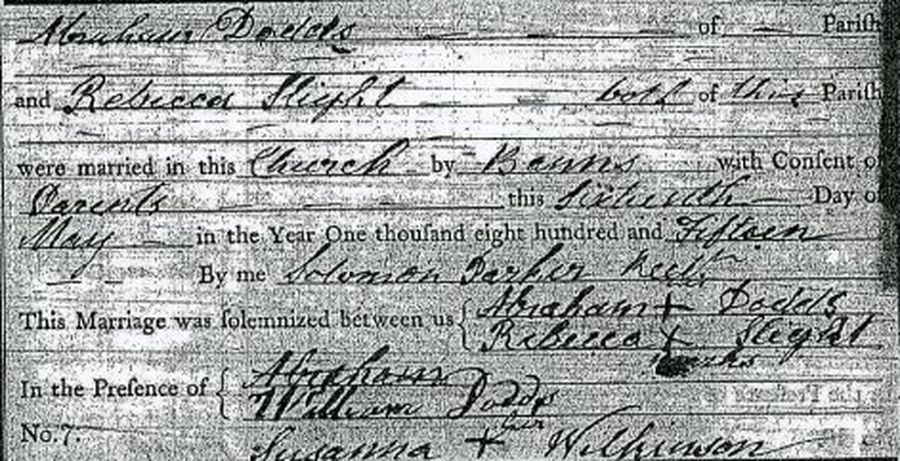 Abraham Dodds of Parish
and Rebecca Slight both of this Parish
were married in this Church by Banns with Consent of
Parents this Sixteenth Day of
May in the Year One thousand eight hundred and Fifteen
By me Solomon Parker
This Marriage was solemnized between us { Abraham + Dodds
Rebecca + Slight
marks
In the Presence of { Abraham
William Dodds
her
No. 7. Susanna + Wilkinson